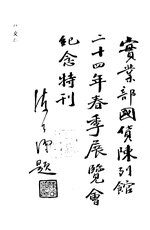 實業部國貨陳列館
二十四年春季展覽會
紀念特刊
題